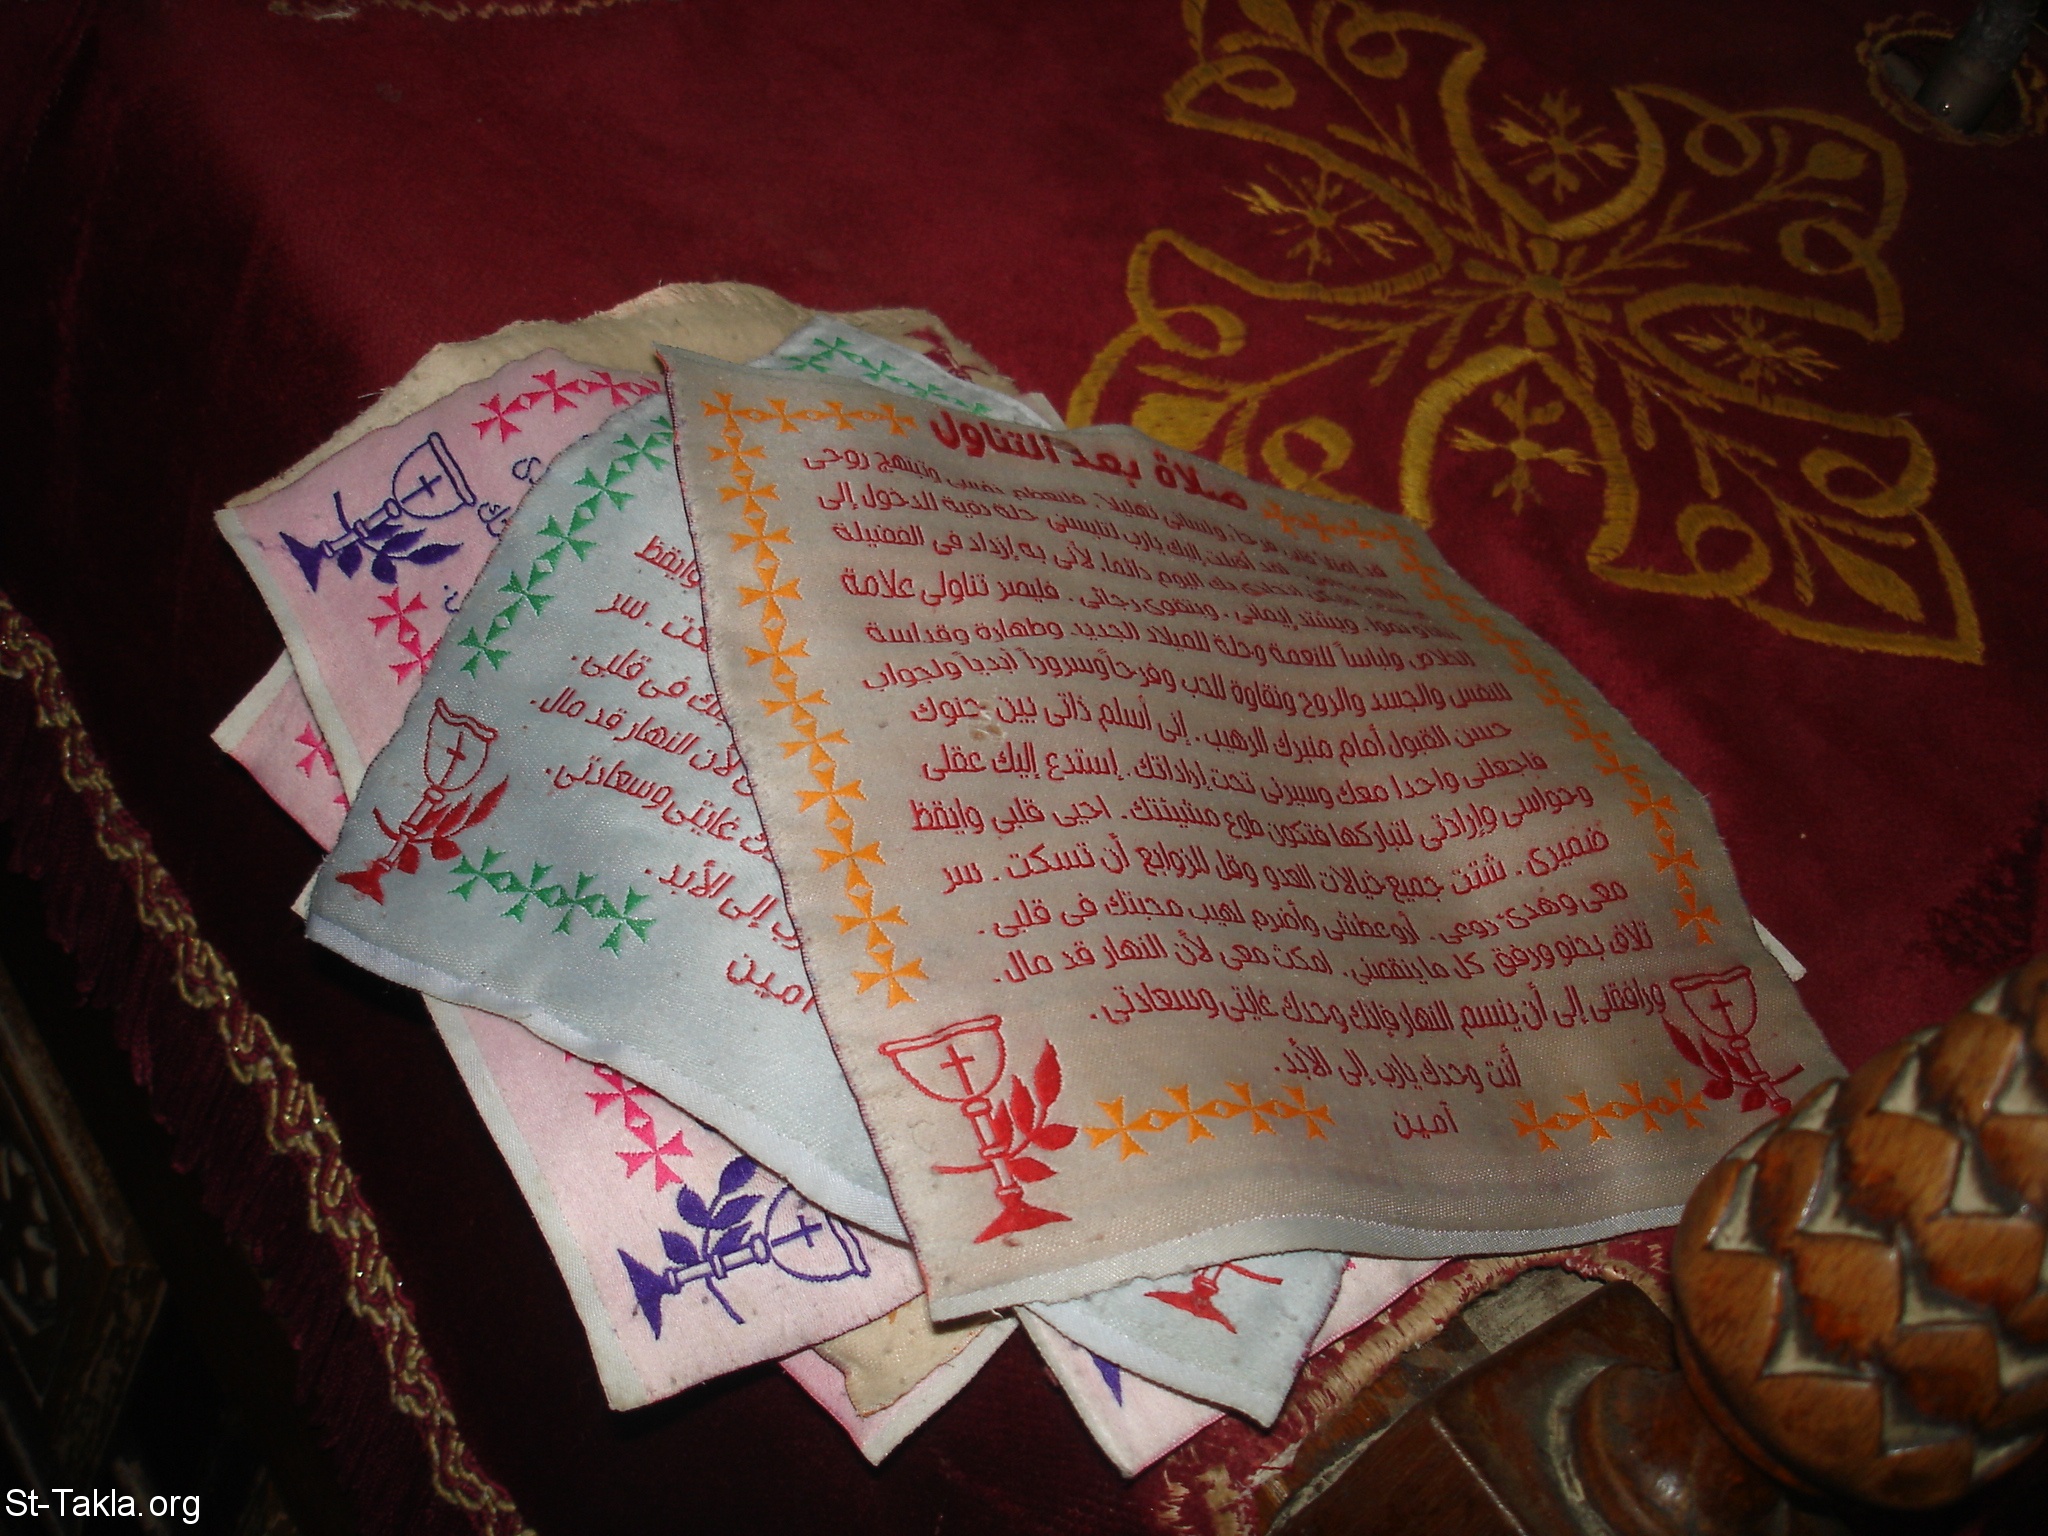 صلاة بعد التناول
قد امتلأ قلبى فرحاً ولسانى تهليلاً، فلتعظم نفسى وتبتهج روحى
قد أقبلت إليك يارب لتلبسنى حلة نقية للدخول إلى
بك اليوم دائما. لأنى به إزداد فى الفضيلة
نموا. ويشتد إيمانى. ويتقوى رجائى. فليصر تناولي علامة
الخلاص ولباساً للنعمة وحلة للميلاد الجديد. وطهارة وقداسة
للنفس والجسد والروح ونقاوة للحب وفرحاً وسروراً أبدياً ولجواب
حسن القبول أمام منبرك الرهيب. إنى أسلم ذاتى بين حنوك
فاجعلنى واحدا معك وسيرنى تحت إراداتك. إستدع إليك عقلى
وحواسى وإرادتى لتباركها فتكون طوع مشيئتك. احيى قلبى وايقظ
ضميرى. شتت جميع خيالات العدو وقل للزوابع أن تسكت. سر
معى وهدئ روعى. أرو عطشى وأضرم لهيب محبتك فى قلبى.
تلاف بحنو ورفق كل ما ينقصنى. امكث معى لأن النهار قد مال.
ورافقنى إلى أن ينسم النهار فإنك وحدك غايتى وسعادتى.
أنت وحدك يارب إلى الأبد.
آمين
وايقظ
سر
فى قلبى.
لأن النهار قد مال.
غايتى وسعادتى.
إلى الأبد.
آمين
St-Takla.org